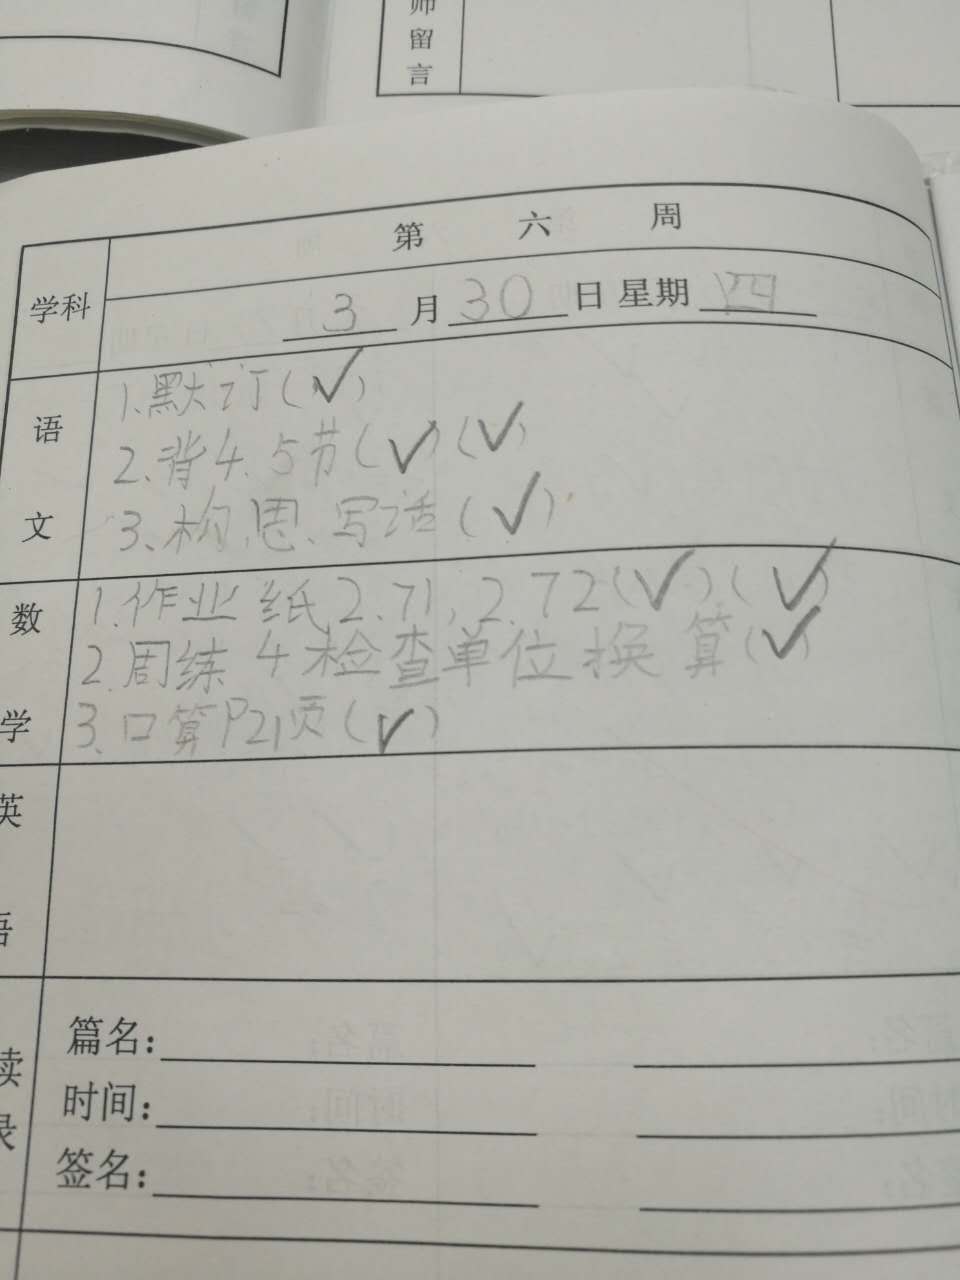 师
留
言
第 六 周
学科
3 月 30 日 星期 四
语文
1.默订(✓)
2.背4.5节(✓)(✓)
3.构思、写话(✓)
数学
1.作业纸2.71,2.72(✓)(✓)
2.周练4检查单位换算(✓)
3.口算P21页(✓)
英
语
读
录
篇名:
时间:
签名: